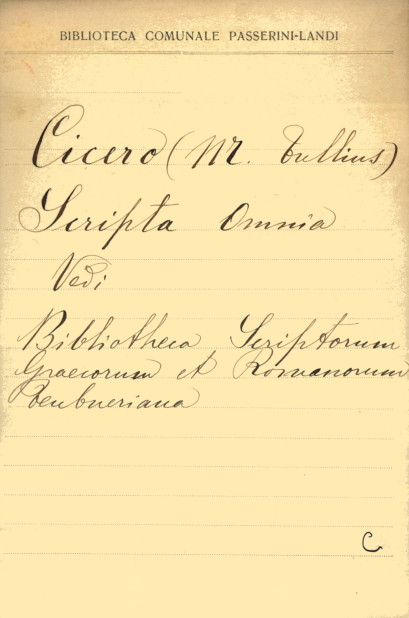 BIBLIOTECA COMUNALE PASSERINI-LANDI
Cicero (M. Tullius)
Scripta Omnia
Vedi
Bibliotheca Scriptorum
Graecorum et Romanorum
Teubneriana
C